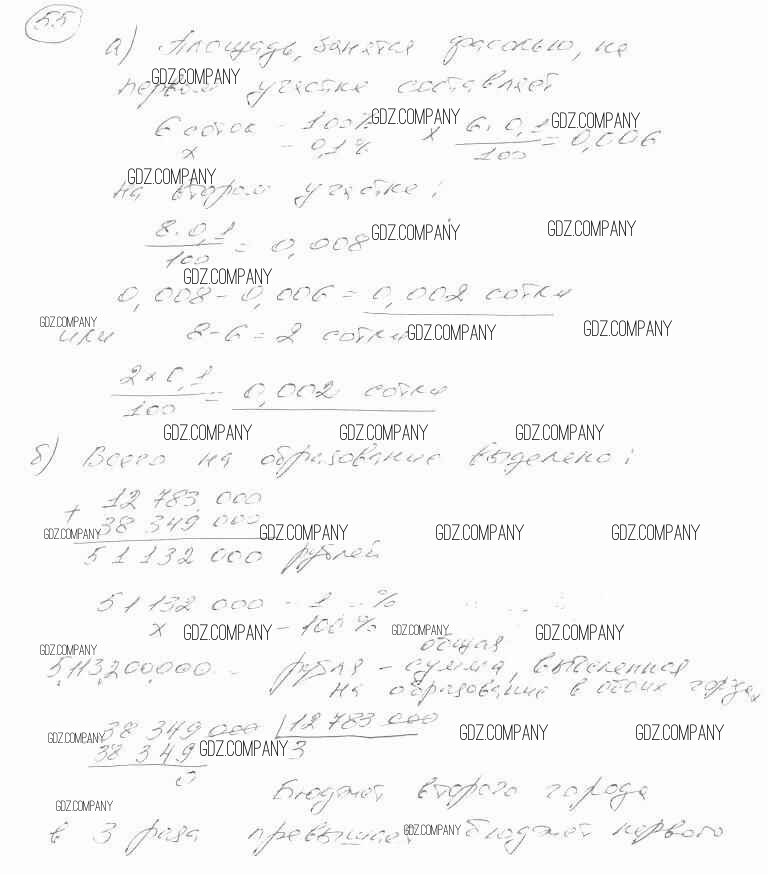 55
а) Площадь, занятая фасолью, на
GDZ.COMPANY
первом участке составляет
6 соток - 100% GDZ.COMPANY x 6 · 0,1 / 100 = 0,006 GDZ.COMPANY
x - 0,1%
GDZ.COMPANY
на втором участке:
8 · 0,1 / 100 = 0,008 GDZ.COMPANY GDZ.COMPANY
GDZ.COMPANY
0,008 - 0,006 = 0,002 сотки
GDZ.COMPANY
или 8 - 6 = 2 сотки GDZ.COMPANY GDZ.COMPANY
2 x 0,1 / 100 = 0,002 сотки
GDZ.COMPANY GDZ.COMPANY GDZ.COMPANY
б) Всего на образование выделено:
+ 12 783 000
38 349 000
GDZ.COMPANY GDZ.COMPANY GDZ.COMPANY GDZ.COMPANY
51 132 000 рублей
51 132 000 - 1 %
x GDZ.COMPANY - 100 % GDZ.COMPANY GDZ.COMPANY
общая
GDZ.COMPANY
5113200000 - рубля - сумма,
на образование в обоих городах
38 349 000 | 12 783 000
GDZ.COMPANY GDZ.COMPANY GDZ.COMPANY
38 349 GDZ.COMPANY 3
0
Бюджет второго города
GDZ.COMPANY
в 3 раза превышает GDZ.COMPANY бюджет первого